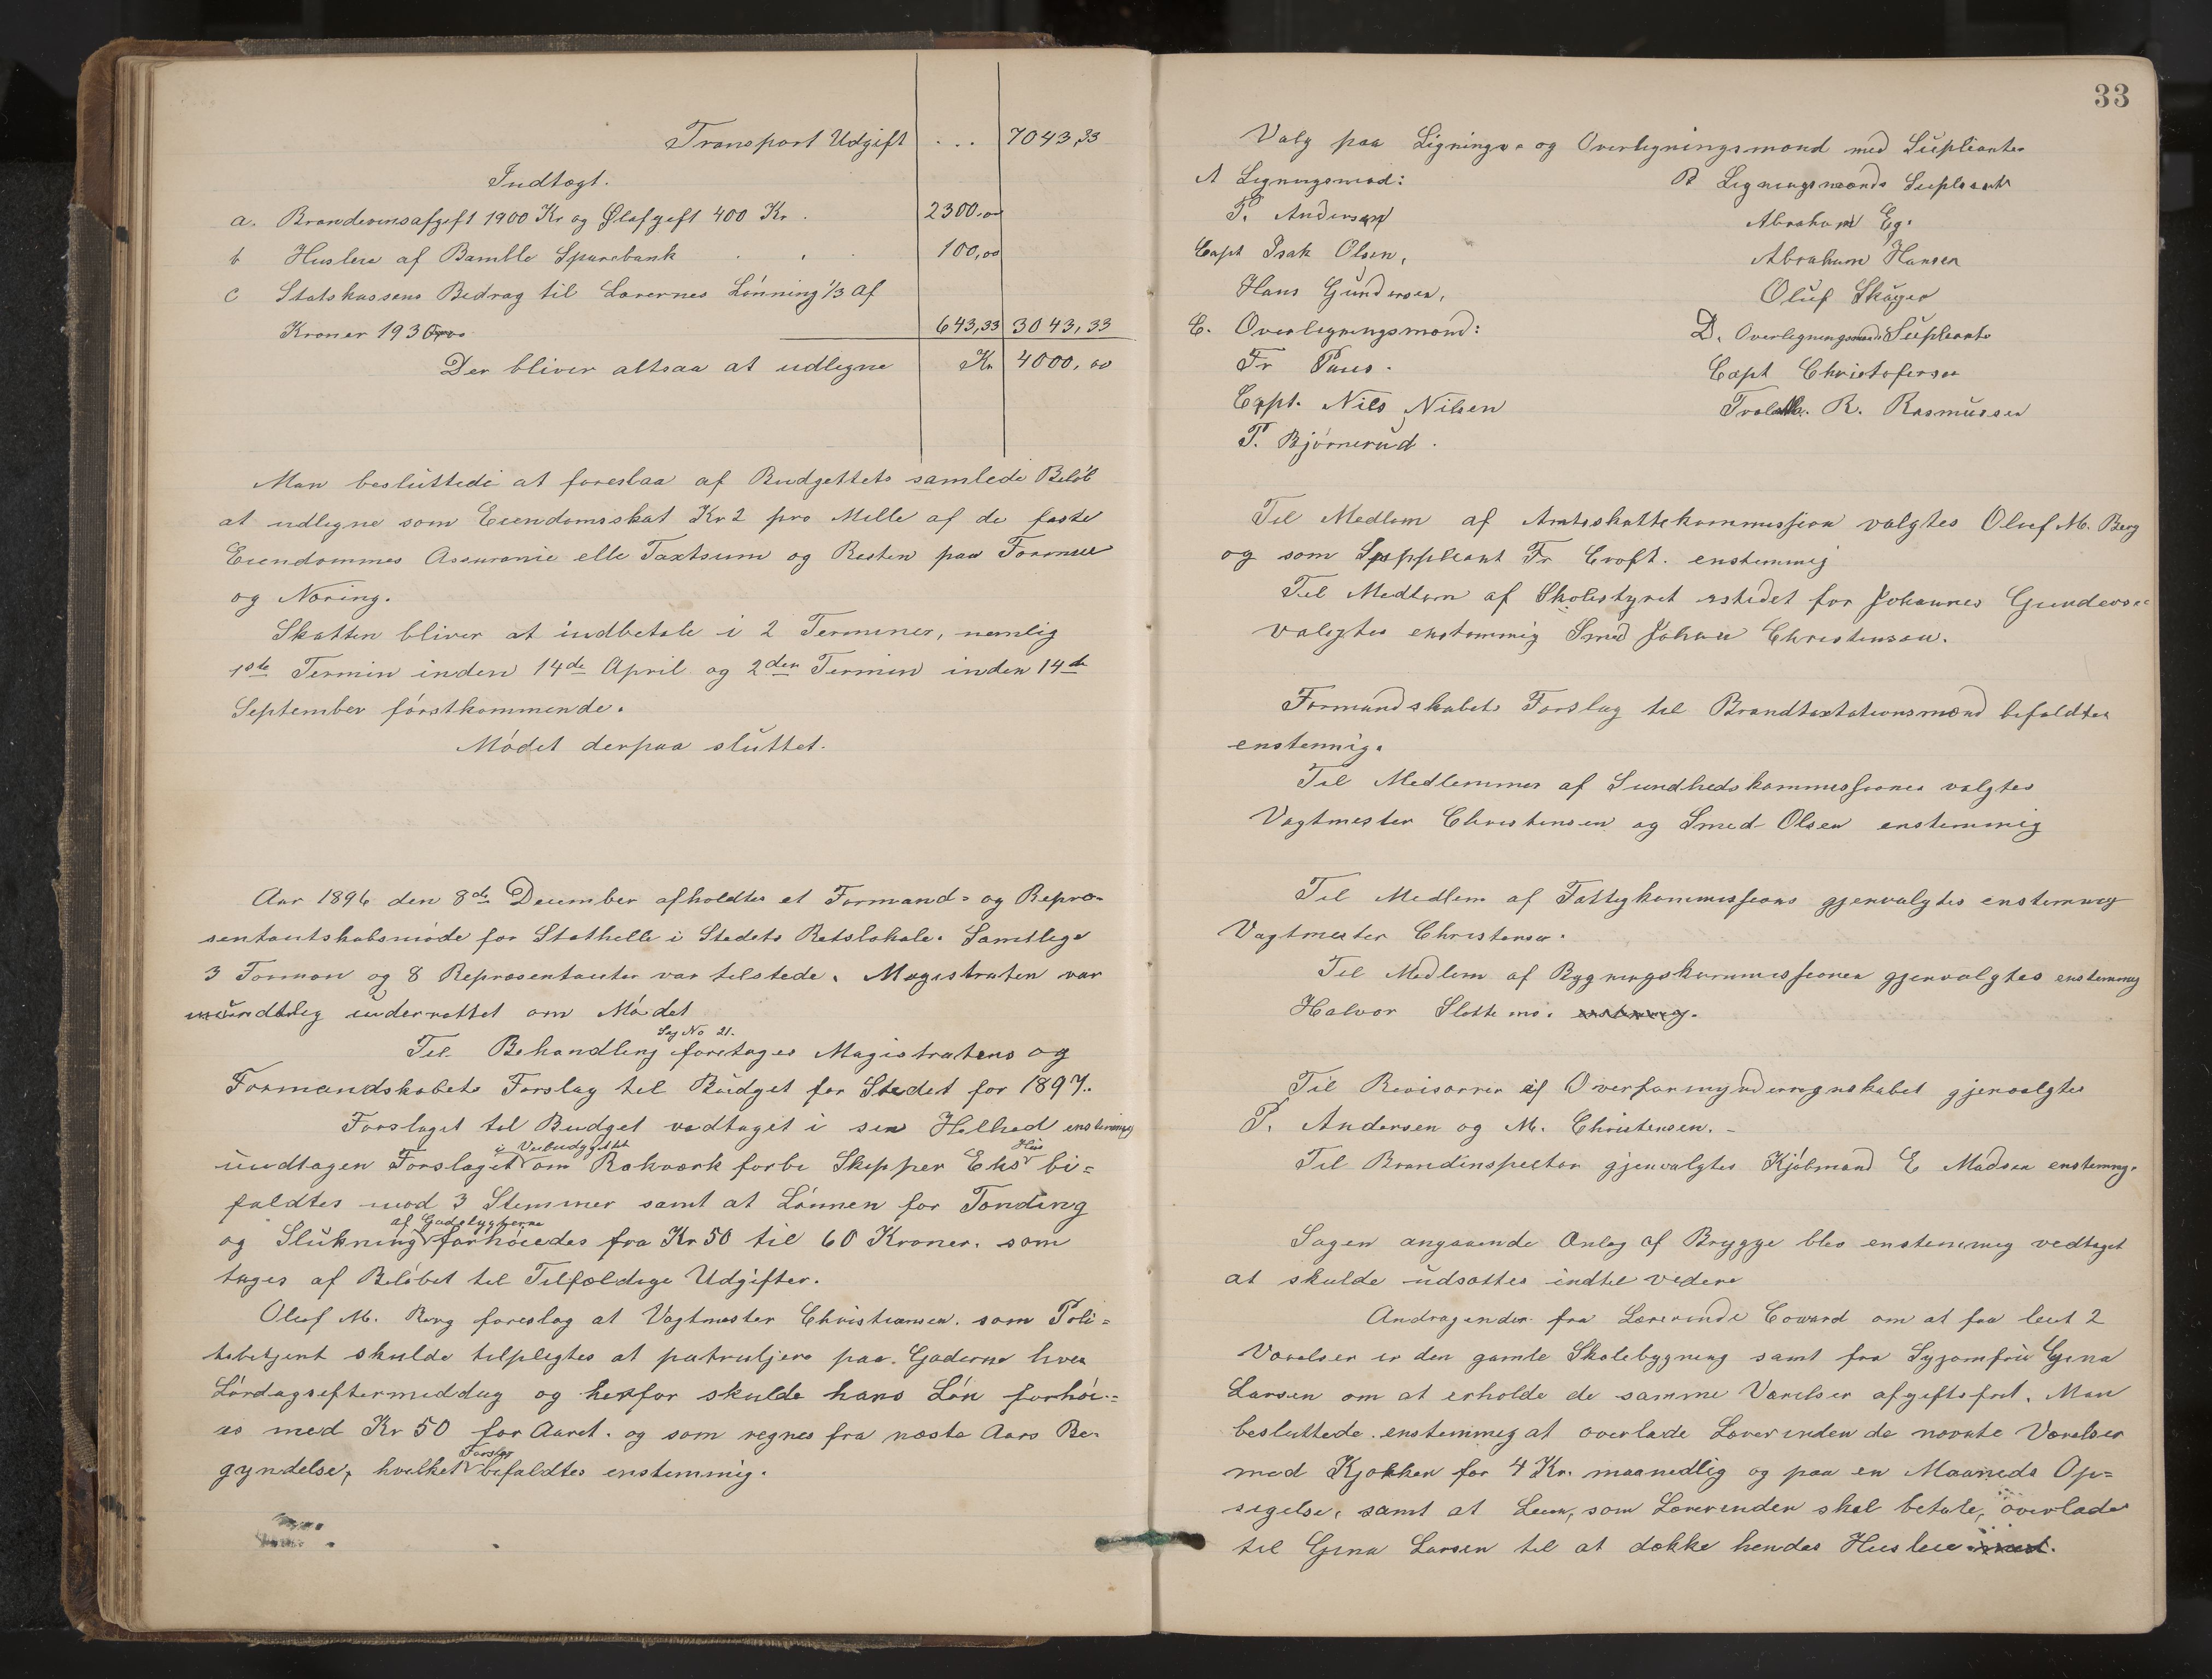 Transport Udgift . . . 7043,33
Indtægt.
a. Brændevinsafgift 1900 Kr og Ølafgift 400 Kr . 2300,00
b Husleie af Bamble Sparebank . . . 100,00
c Statskassens Bidrag til Lærernes Lönning 1/3 af
Kroner 1930 643,33 3043,33
Der bliver altsaa at udligne Kr 4000,00
Man besluttede at foreslaa af Budgettets samlede Belöb
at udligne som Eiendomsskat Kr 2 pro Mille af de faste
Eiendommes Assurance elle Taxtsum og Resten paa Formue
og Næring.
Skatten bliver at indbetale i 2 Terminer, nemlig
1ste Termin inden 14de April og 2den Termin inden 14de
September förstkommende.
Mödet derpaa sluttet.
Aar 1896 den 8de December afholdtes et Formand- og Repræ-
sentantskabsmöde for Stathelle i Stedets Retslokale. Samtlige
3 Formæn og 8 Repræsentanter var tilstede. Magistraten var
mündtlig underrettet om Mödet
Sag No 21.
Til Behandling foretoges Magistratens og
Formandskabets Forslag til Budget for Stedet for 1897.
Forslaget til Budget vedtaget i sin Helhed enstemmig
i Veibudgettet Hus
undtagen Forslaget om Rækværk forbi Skipper Eks bi=
faldtes mod 3 Stemmer samt at Lönnen for Tænding
af Gadelygterne
og Slükning forhöiedes fra Kr 50 til 60 Kroner. som
tages af Belöbet til Tilfældige Udgifter.
Oluf M. Berg foreslog at Vagtmester Christiansen. som Poli=
tibetjent skulde tilpligtes at patruljere paa Gaderne hver
Lördagseftermiddag og herfor skulde hans Lön forhöi=
es med Kr 50 for Aaret. og som regnes fra næste Aars Be-
Forslag
gyndelse, hvilket bifaldtes enstemmig.
33
Valg paa Lignings- og Overligningsmænd med Supleanter
A Ligningsmæd: B Ligningsmænds Supleant
P. Andersen Abraham Eg.
Capt Isak Olsen, Abraham Hansen
Hans Gundersen, Oluf Sküger
C. Overligningsmænd: D. Overligningsmænds Supleante
Fr Paus. Capt Christofersen
Capt. Nils Nilsen R. Rasmüssen
P. Björnerud.
Til Medlem af Amtsskattekommissjon valgtes Oluf M. Berg
og som Suppleant Fr Croft. enstemmig
Til Medlem af Skolestyret istedet for Johannes Gundersen
valgtes enstemmig Smed Johan Christensen.
Formandskabets Forslag til Brandtaxtationsmænd bifaldtes
enstemmig.
Til Medlemmer af Sundhedskommissionen valgtes
Vagtmester Christensen og Smed Olsen enstemmig
Til Medlem af Fattigkommissions gjenvalgtes enstemmig
Vagtmester Christensen.
Til Medlem af Bygningskommissionen gjenvalgtes enstemmig
Halvor Slottemo. enstemmig.
Til Revisorer af Overformynderregnskabet gjenvalgtes
P. Andersen og M. Christensen. –
Til Brandinspectör gjenvalgtes Kjöbmand E Madsen enstemmig.
Sagen angaaende Anlæg af Brygge blev enstemmig vedtaget
at skulde udsættes indtil videre
Andragender fra Lærerinde Coward om at faa leiet 2
Værelser i den gamle Skolebygning samt fra Syjomfrü Gina
Larsen om at erholde de samme Værelser afgiftsfrit. Man
besluttede enstemmig at overlade Lærerinden de nævnte Værelser
med Kjökken for 4 Kr. maanedlig og paa en Maaneds Op=
sigelse, samt at Leien, som Lærerinden skal betale, overlades
til Gina Larsen til at dække hendes Husleie